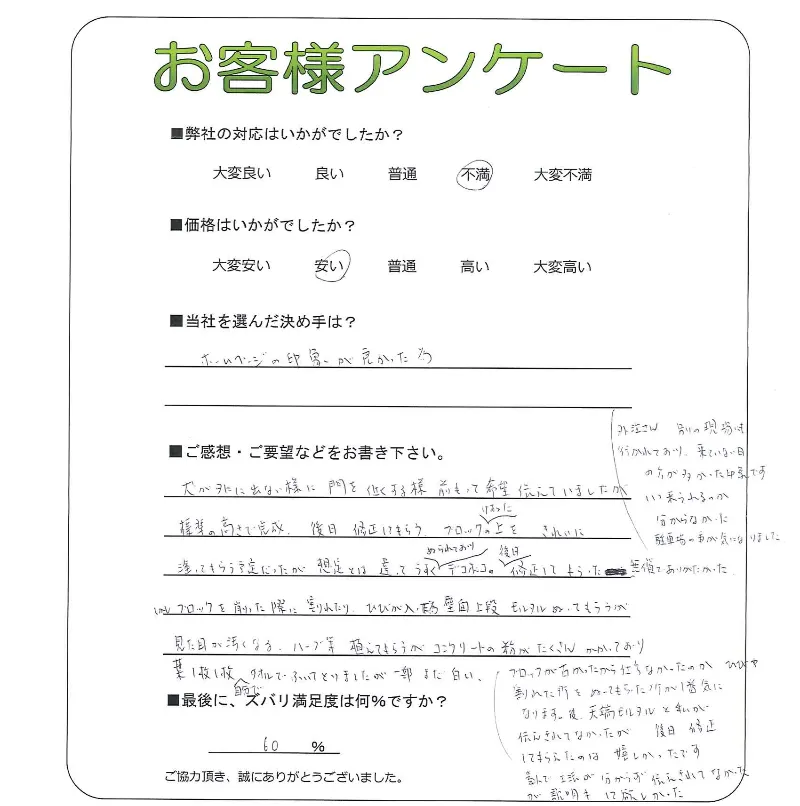 お客様アンケート
■弊社の対応はいかがでしたか？
大変良い 良い 普通 不満 大変不満
■価格はいかがでしたか？
大変安い 安い 普通 高い 大変高い
■当社を選んだ決め手は？
ホームページの印象が良かった為
■ご感想・ご要望などをお書き下さい。
犬が外に出ない様に 門を低くする様 前もって希望 伝えていましたが
標準の高さで完成、後日 修正してもらう、ブロックの上を きれいに
塗ってもらう予定だったが 想定とは違って 修正してもらった 無償でありがたかった。
ブロックを削った際に割れたり、ひびが入 壁面上段 モルタルぬってもらうが
見た目が汚くなる、ハーブ等 植えてもらうが コンクリートの粉がたくさん かかっており
葉1枚1枚 自前で タオルでふいてとりましたが 一部 まだ白い、
さん 別の現場は
行かれており、来ていない日
の方が多かった印象です
いつ来られるのか
分からなかった
駐車場の車が気になりました
ブロックが古かったから仕方なかったのか ひびや
割れた所を ぬってもらった所が1番気に
なります。 モルタルと私が
伝えきれてなかったが 後日 修正
してもらえたのは 嬉しかったです
分からず 伝えきれてなかった
が 説明を して欲しかった
■最後に、ズバリ満足度は何%ですか？
60 %
ご協力頂き、誠にありがとうございました。